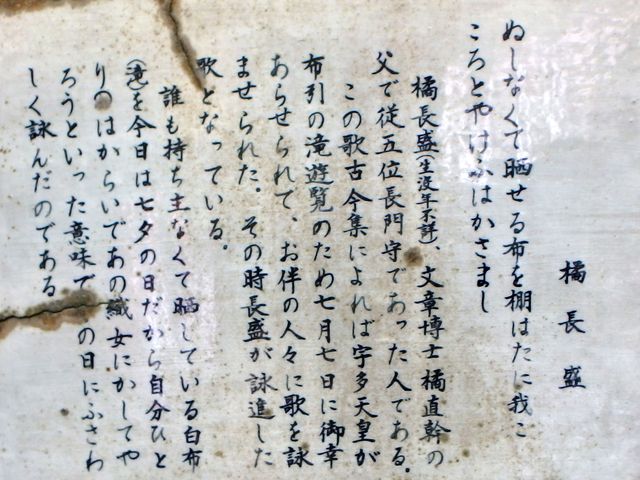 橘長盛
ぬしなくて晒せる布を棚はたに我こ
ころとやけふはかさまし
橘長盛(生没年不詳)、文章博士橘直幹の
父で従五位長門守であった人である。
この歌古今集によれば宇多天皇が
布引の滝遊覧のため七月七日に御幸
あらせられて、お伴の人々に歌を詠
ませられた。その時長盛が詠進した
歌となっている。
誰も持ち主なくて晒している白布
(滝)を今日は七夕の日だから自分ひと
りのはからいであの織女にかしてや
ろうといった意味で の日にふさわ
しく詠んだのである